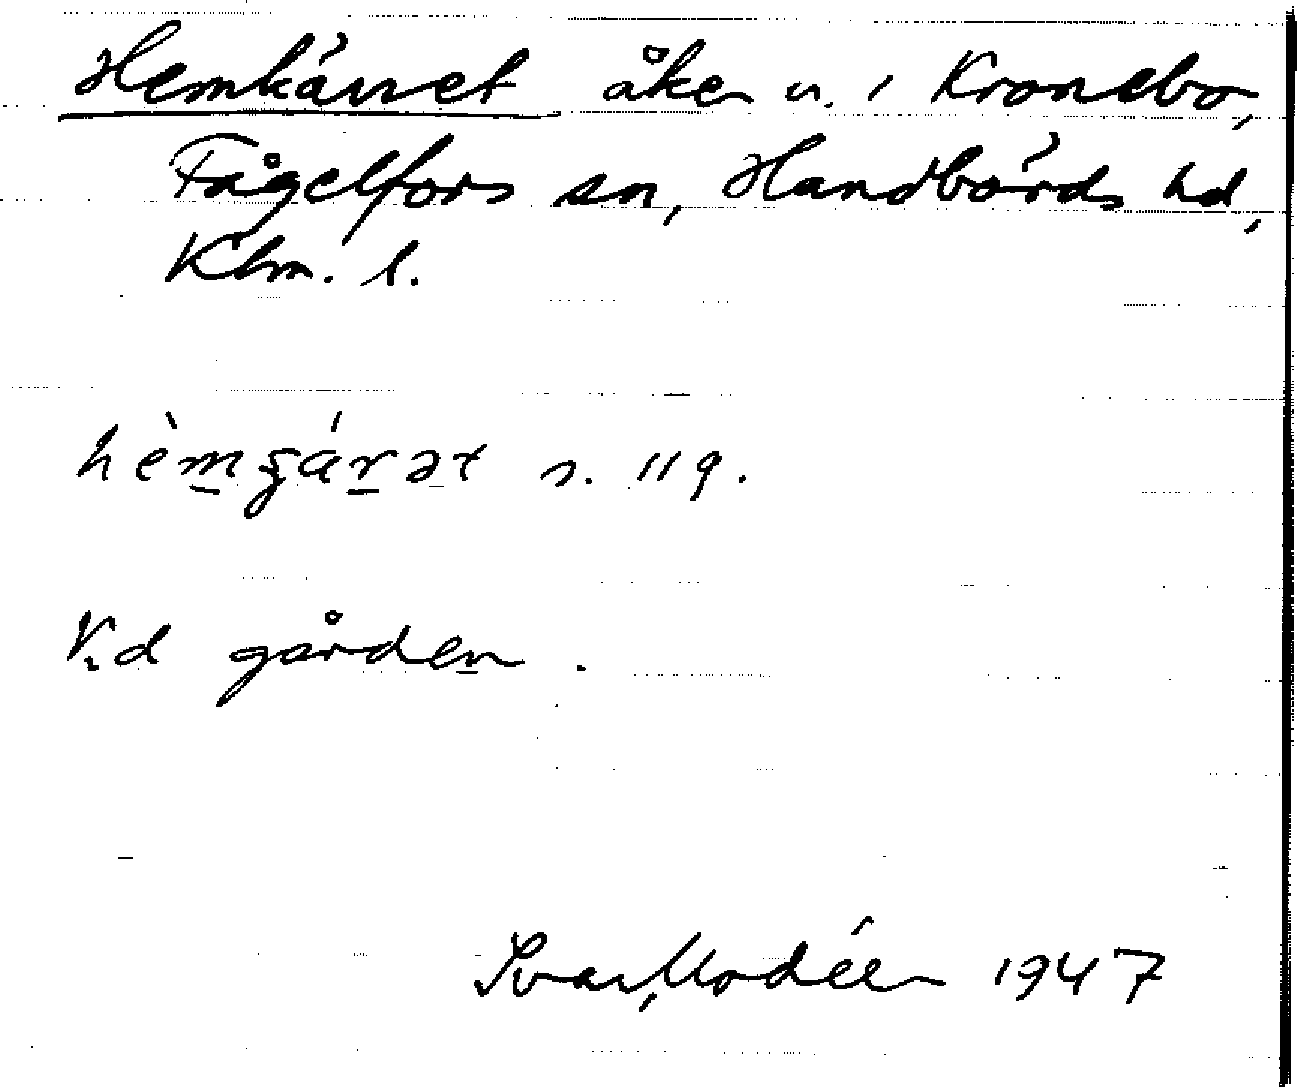 Hemkärret åker u. i Kronebo,
Fågelfors sn, Handbörds hd,
Klm. l.
hèmʒárət s. 119.
Vid gården.
Ivar Modéer 1947